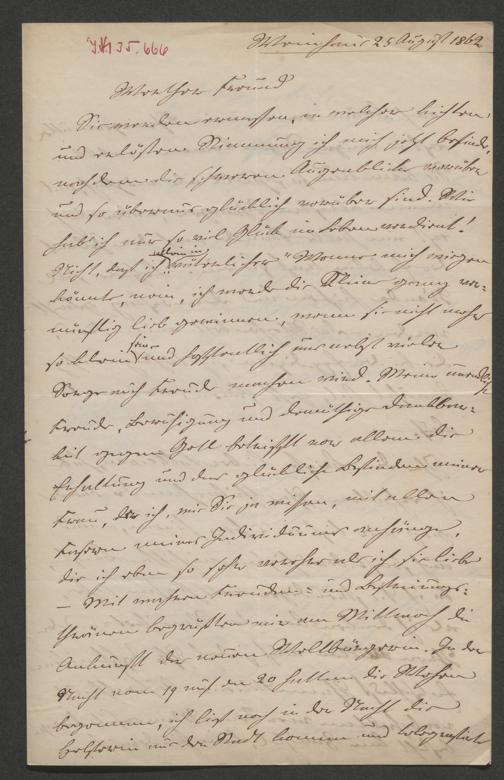 IN 35.666
Weinhaus 25 August 1862
Werther Freund
Sie werden ermessen, in welcher lichten
und erlösten Stimmung ich mich jetzt befinde,
nachdem die schweren Augenblicke vorüber
und so überaus glücklich vorüber sind. Wie
hab' ich nur so viel Glück im Leben verdient!
Nicht, daß ich allein in „väterlicher“ Wonne mich wiegen
könnte, nein, ich werde die Kleine ganz ver-
nünftig lieb gewinnen, wenn sie nicht mehr
so klein sein und hoffentlich uns nebst vieler
Sorge auch Freude machen wird. Meine unendliche
Freude, Beruhigung und demüthige Dankbar-
keit gegen Gott betrifft vor allem die
Erhaltung und das glückliche Befinden meiner
Frau, der ich, wie Sie ja wissen, mit allen
Fasern meines Individuums anhänge,
die ich eben so sehr verehre als ich sie liebe
— Mit wahren Freuden- und
thränen begrüßten wir am Mittwoch die
Ankunft der neuen Weltbürgerin. In der
Nacht vom 19 auf den 20 hatten die Wehen
begonnen, ich ließ noch in der Nacht die
Helferin aus der Stadt kommen und